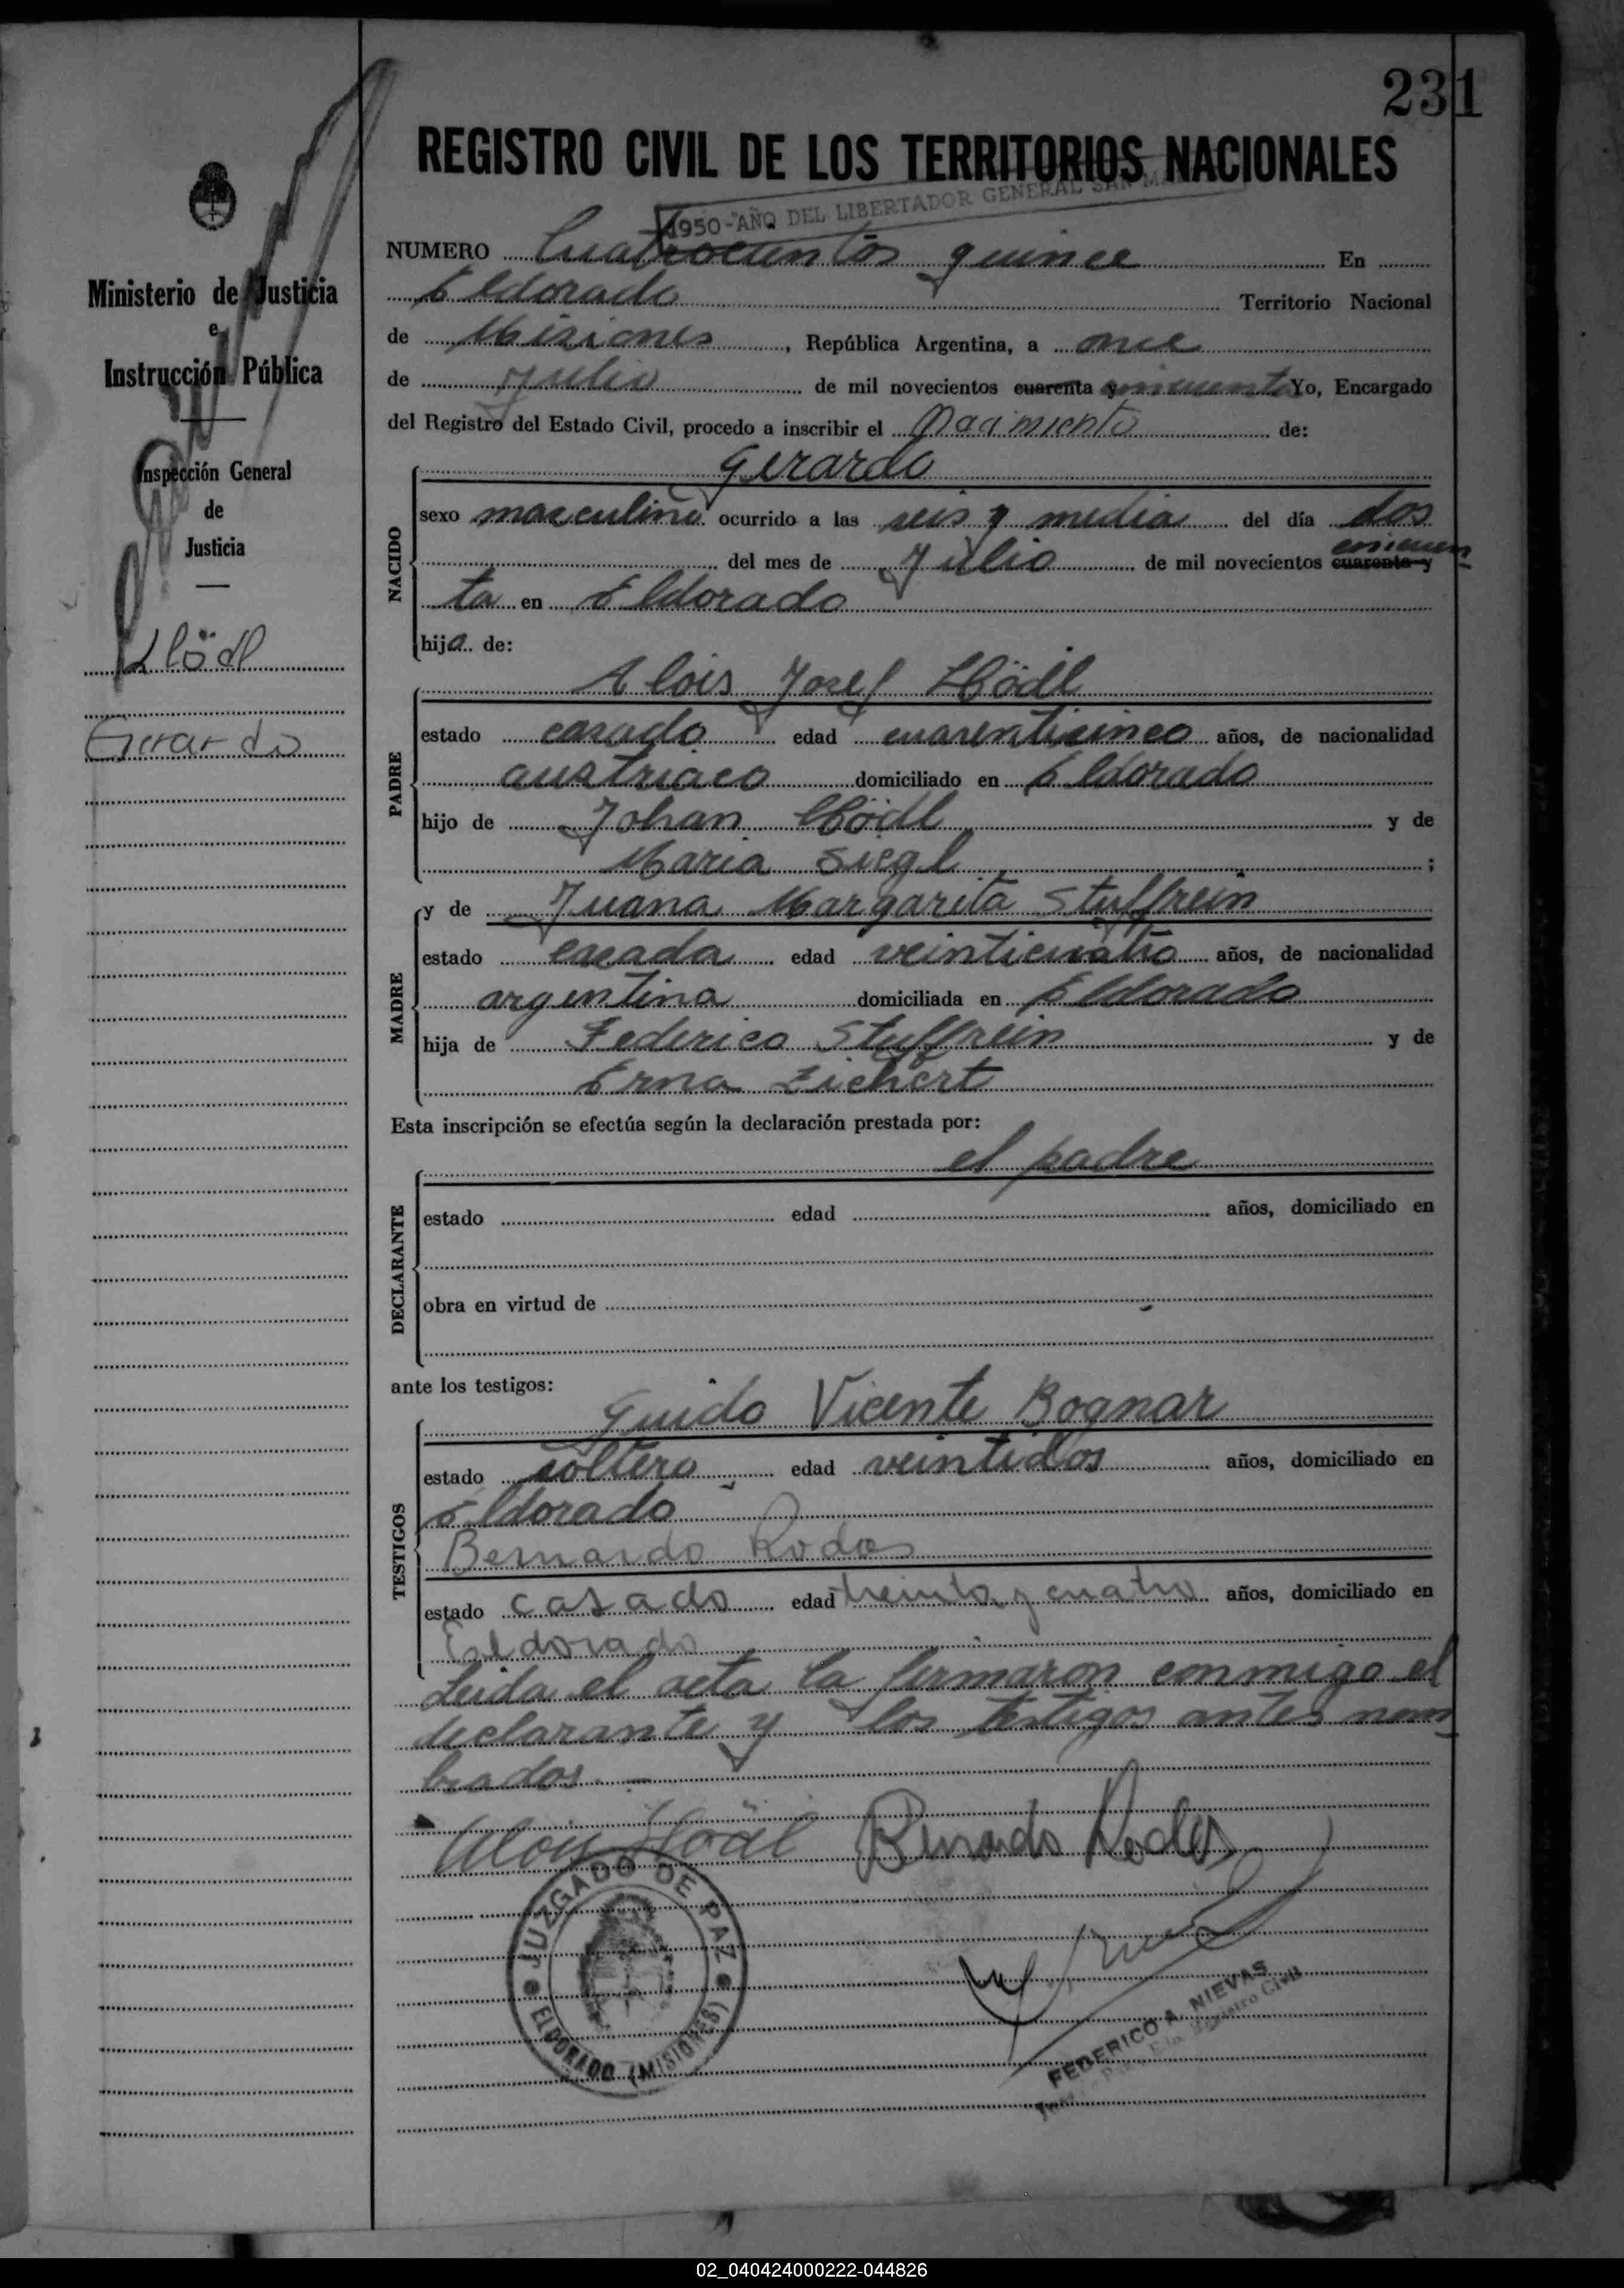 231
REGISTRO CIVIL DE LOS TERRITORIOS NACIONALES
1950-AÑO DEL LIBERTADOR GENERAL SAN MA
NUMERO Cuatrocientos quince En
Eldorado Territorio Nacional
de Misiones, República Argentina, a once
de Julio de mil novecientos cuarenta y cincuenta Yo, Encargado
del Registro del Estado Civil, procedo a inscribir el nacimiento de:
NACIDO
Gerardo
sexo masculino ocurrido a las seis y media del día dos
del mes de Julio de mil novecientos cuarenta y cincuen
ta en Eldorado
hijo de:
PADRE
Alois Josef Hödl
estado casado edad cuarenticinco años, de nacionalidad
austriaco domiciliado en Eldorado
hijo de Johan Hödl y de
Maria Siegl ;
MADRE
y de Juana Margarita Stuffrein
estado casada edad veinticuatro años, de nacionalidad
argentina domiciliada en Eldorado
hija de Federico Stuffrein y de
Erna Zichert
Esta inscripción se efectúa según la declaración prestada por:
DECLARANTE
el padre
estado edad años, domiciliado en
obra en virtud de
ante los testigos:
TESTIGOS
Guido Vicente Bognar
estado soltero edad veintidos años, domiciliado en
Eldorado
Bernardo Rodas
estado casado edad treinta y cuatro años, domiciliado en
Eldorado
Leida el acta la firmaron conmigo el
declarante y los testigos antes nom
brados.
Alois Hödl Bernardo Rodas
JUZGADO DE PAZ
ELDORADO (MISIONES)
FEDERICO A. NIEVAS
Registro Civil
Ministerio de Justicia
e
Instrucción Pública
Inspección General
de
Justicia
Hödl
Gerardo
02_040424000222-044826